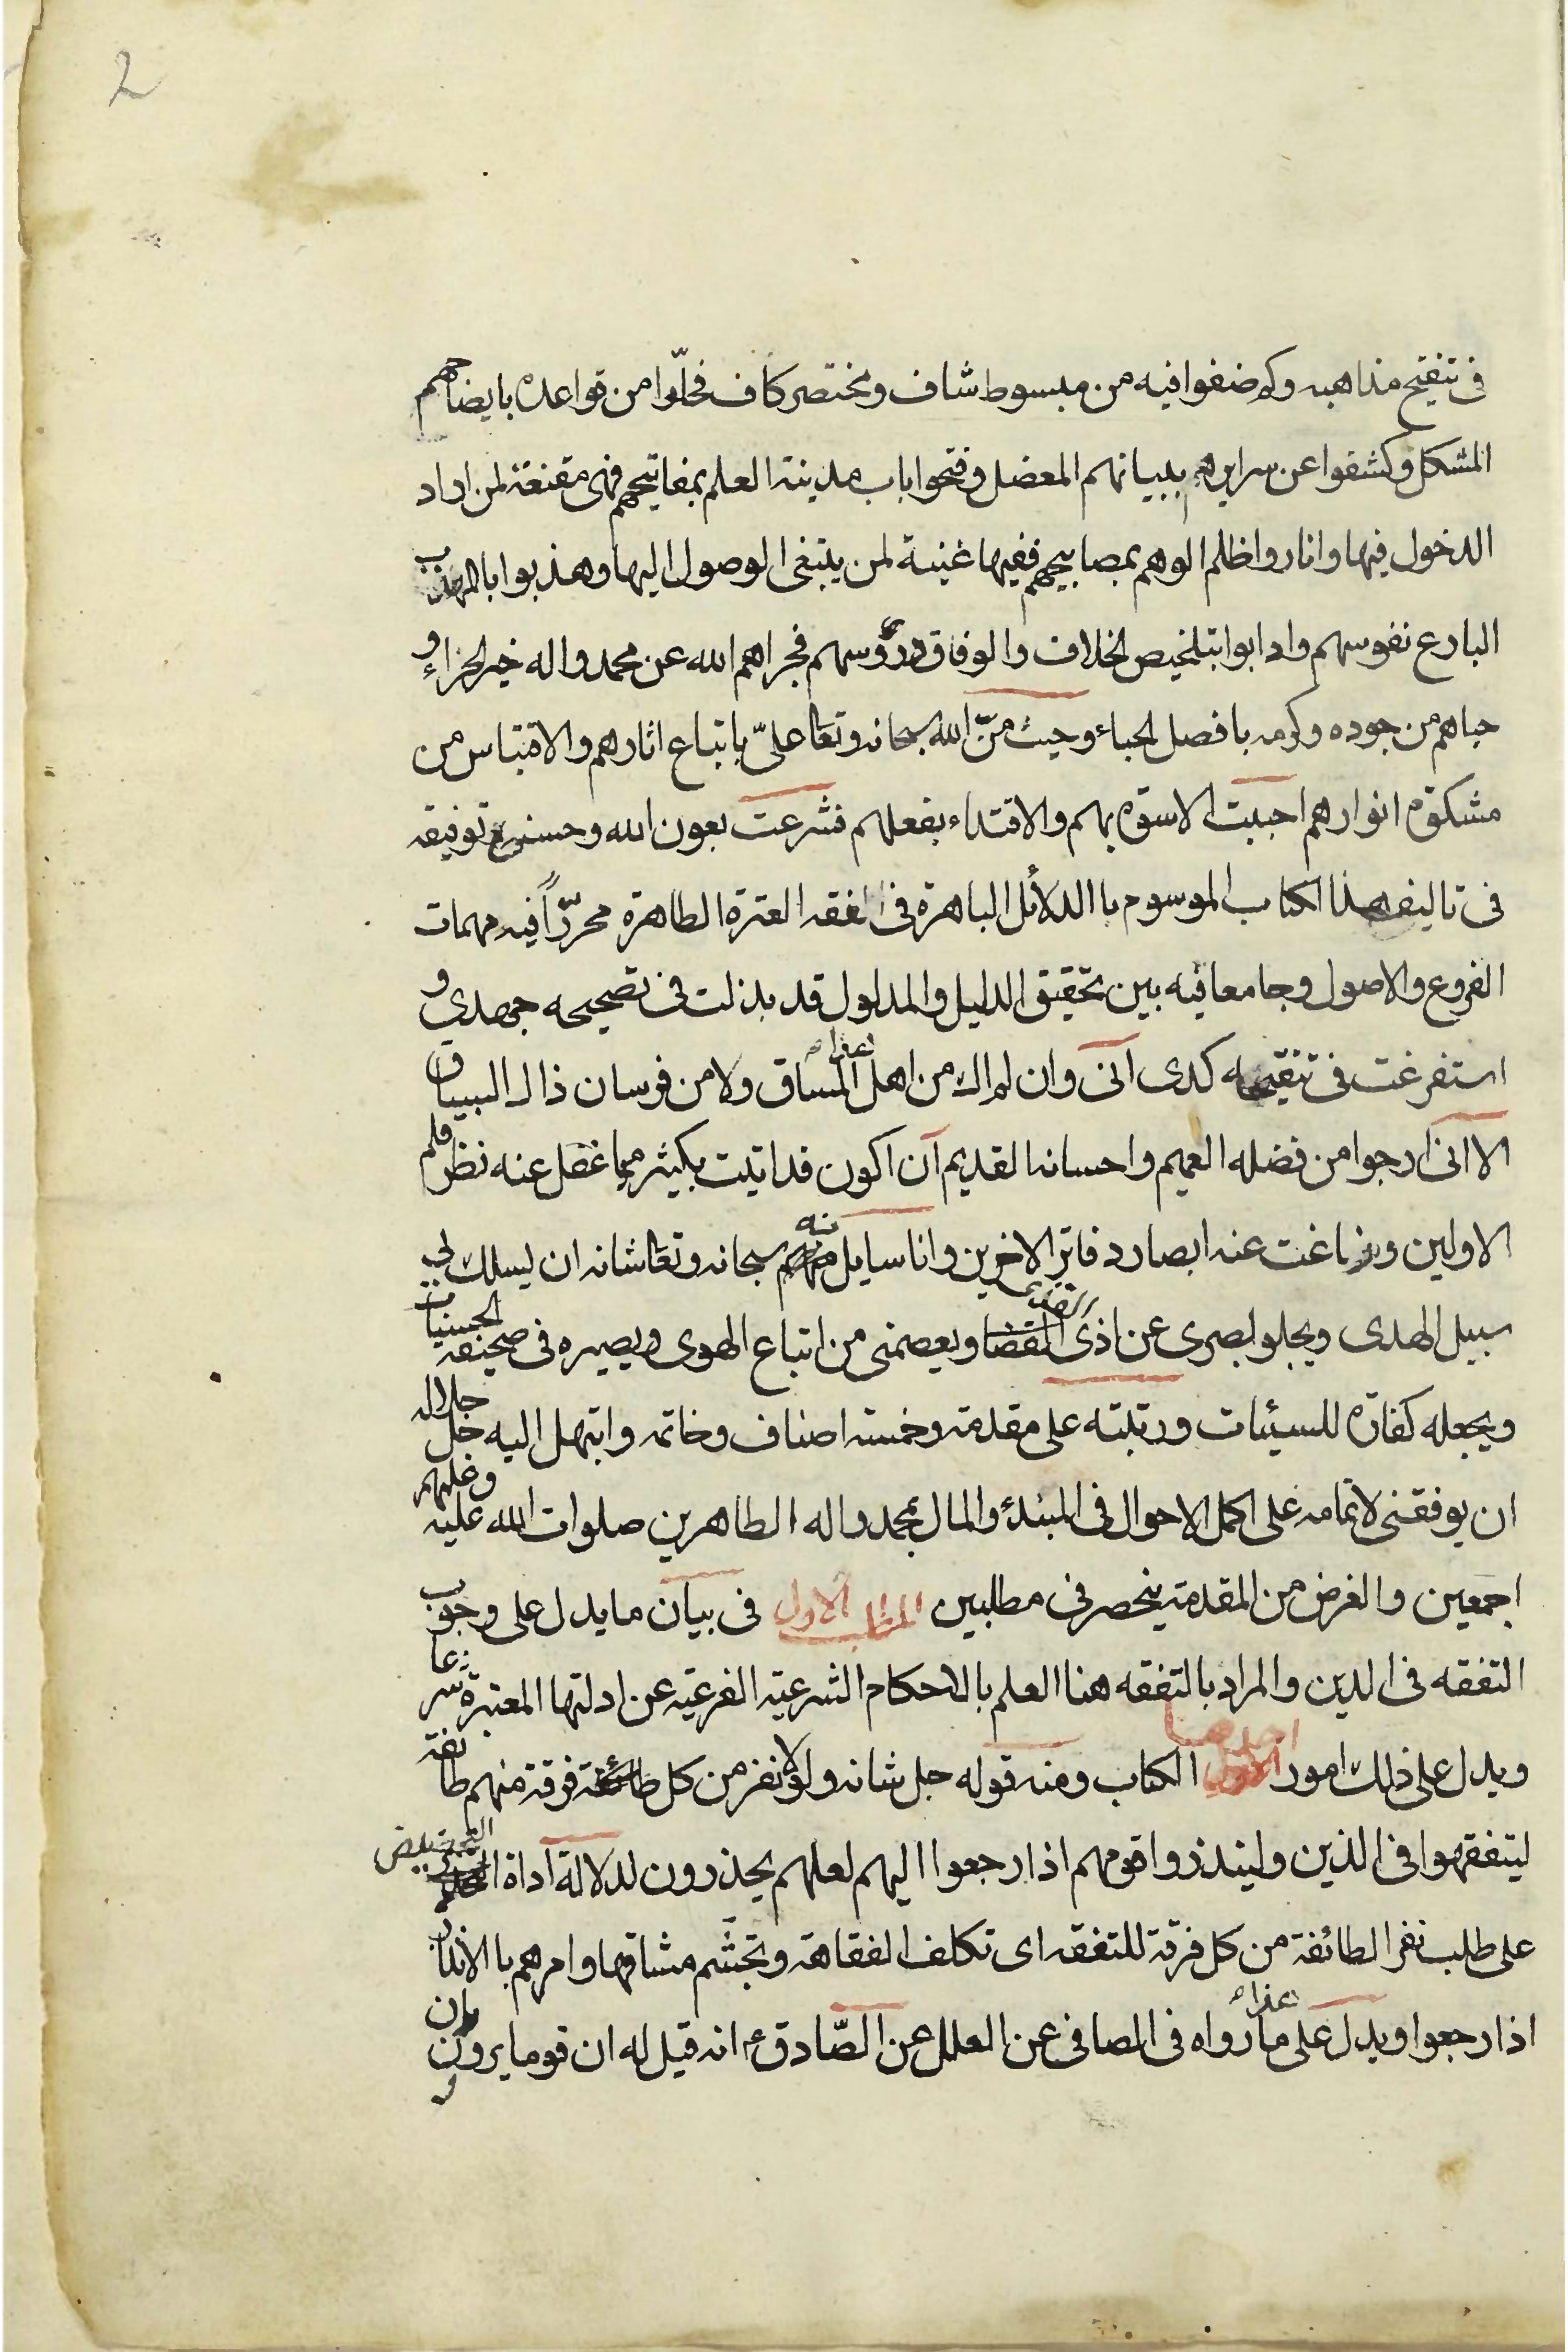 2
فى تنقيح مذاهبه وكم ضفوا فيه من مبسوط شاف ومختصر كاف فحلّوا من قواعده بايضاحهم
المشكل وكشفوا عن سرايرهم ببيانهم المعضل وفتحوا باب مدينة العلم بمفاتيحهم فهى مقنعة لمن اراد
الدخول فيها واناروا ظلم الوهم بمصابيحهم ففيها غنية لمن يبتغى الوصول اليها وهذبوا بالمهذب
البارع نفوسهم وادابوا بتلخيص الخلاف والوفاق دروسهم فجزاهم الله عن محمد واله خير الجزاء و
حباهم من جوده وكرمه بافضل الحباء وحيث منّ الله سبحانه وتعا علىّ باتباع اثارهم والاقتباس من
مشكوة انوارهم احببت الاسوة بهم والاقتداء بفعلهم فشرعت بعون الله وحسن توفيقه
فى تاليف هذا الكتاب الموسوم باالدلائل الباهرة فى الفقه العترة الطاهرة محرّراً فيه مهمات
الفروع والاصول وجامعا فيه بين تحقيق الدليل والمدلول قد بذلت فى تصحيحه جهدى و
استفرغت فى تنقيحه كدى انى وان لم اك من اهل هذا المساق ولا من فرسان ذاك السباق
الا انى ارجوا من فضله العميم واحسانه القديم ان اكون قد اتيت بكثير مما غفل عنه نظر قلم
الاولين وزاغت عنه ابصار دفاتر الاخرين وانا سايل منه سبحانه وتعا شانه ان يسلك بى
سبيل الهدى ويجلو بصرى عن اذى القذى ويعصمنى من اتباع الهوى ويصيره فى صحيفة الحسنيات
ويجعله كفارة للسيئات ورتبته على مقدمة وخمسة اصناف وخاتمه وابتهل اليه جل جلاله
ان يوفقنى لاتمامه على اكمل الاحوال فى المبدء والمال بمحمد واله الطاهرين صلوات الله عليه وعليهم
اجمعين والغرض من المقدمة ينحصر فى مطلبين المطلب الاول فى بيان ما يدل على وجوب
التفقه فى الدين والمراد بالتفقه هنا العلم بالاحكام الشرعية الفرعية عن ادلتها المعتبرة شرعا
ويدل على ذلك امور احدها الكتاب ومنه قوله جل شانه ولولا نفر من كل فرقة منهم طائفة
ليتفقهوا فى الدين ولينذروا قومهم اذا رجعوا اليهم لعلهم يحذرون لدلالة اداة التحضيض
على طلب نفر الطائفة من كل فرقة للتفقه اى تكلف الفقاهة وتجشّم مشاقها وامرهم باالانذار
اذا رجعوا ويدل على هذا ما رواه فى الصافى عن العلل عن الصّادق ع انه قيل له ان قوما يروون